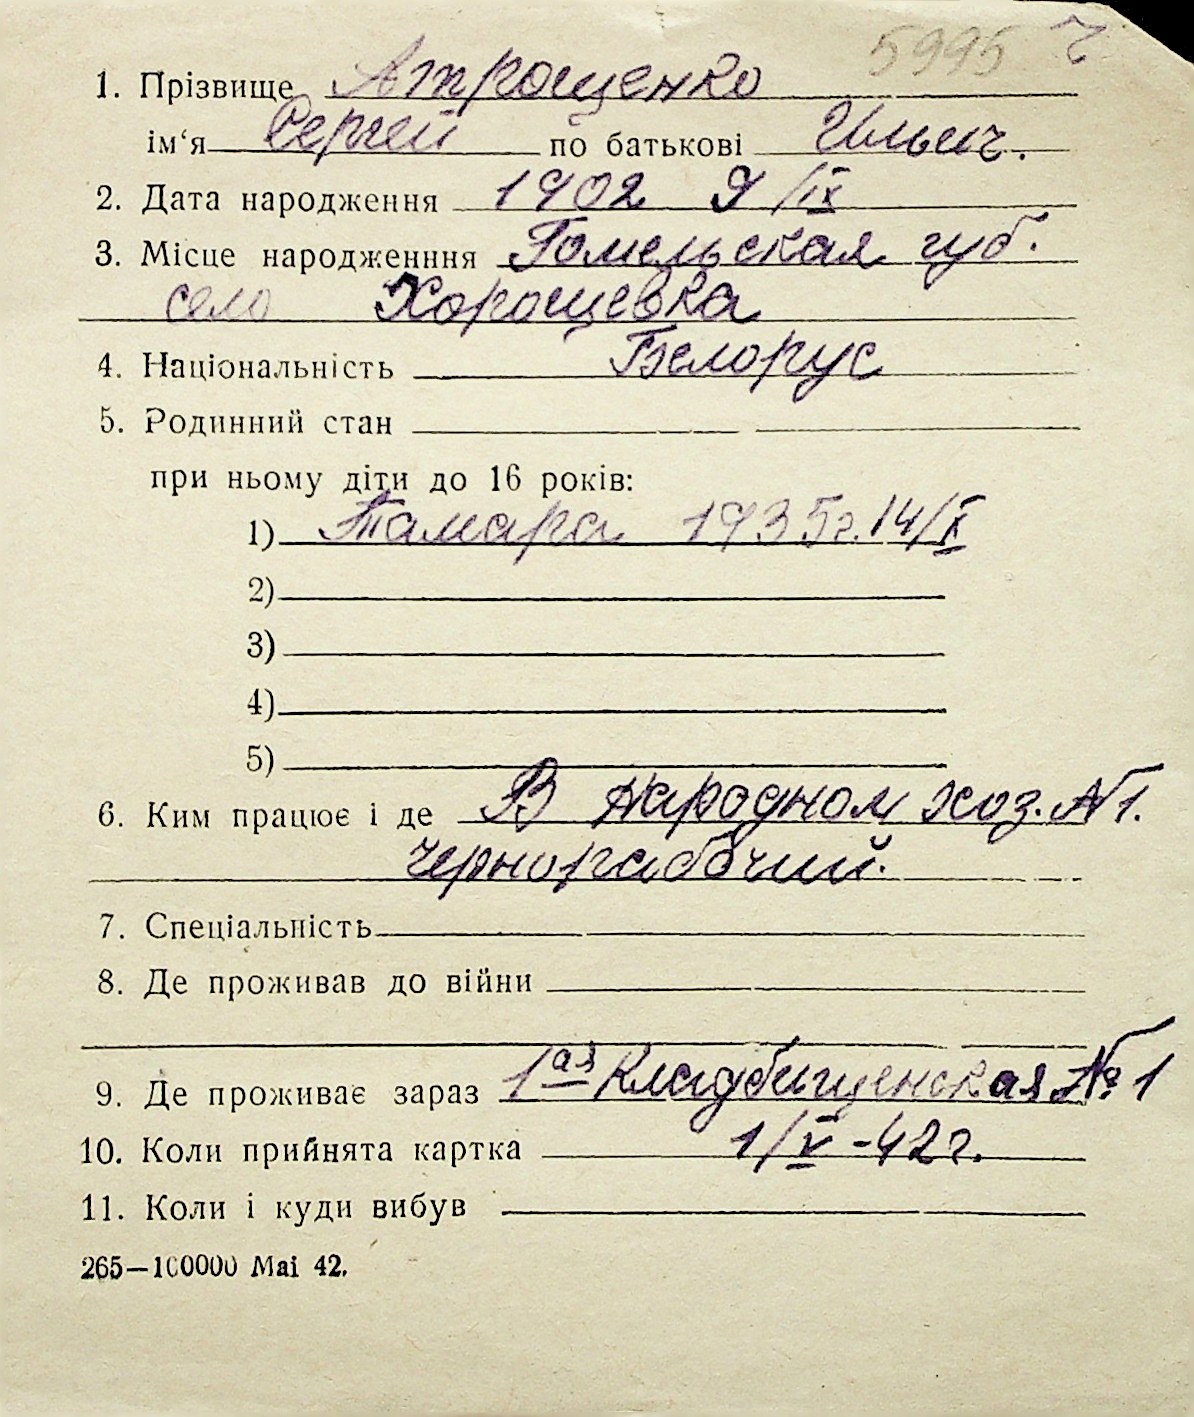 5995 ч
1. Прізвище Атрощенко
ім‘я Сергей по батькові Ильич.
2. Дата народження 1902 9/IX
3. Місце народженння Гомельская губ.
село Хорощевка
4. Національність Белорус
5. Родинний стан
при ньому діти до 16 років:
1) Тамара 1935г. 14/X
2)
3)
4)
5)
6. Ким працює і де В народном хоз. №1.
чернорабочий.
7. Спеціальність
8. Де проживав до війни
9. Де проживає зараз 1ая Кладбищенская № 1
10. Коли прийнята картка 1/V-42г.
11. Коли і куди вибув
265—100000 Маі 42.